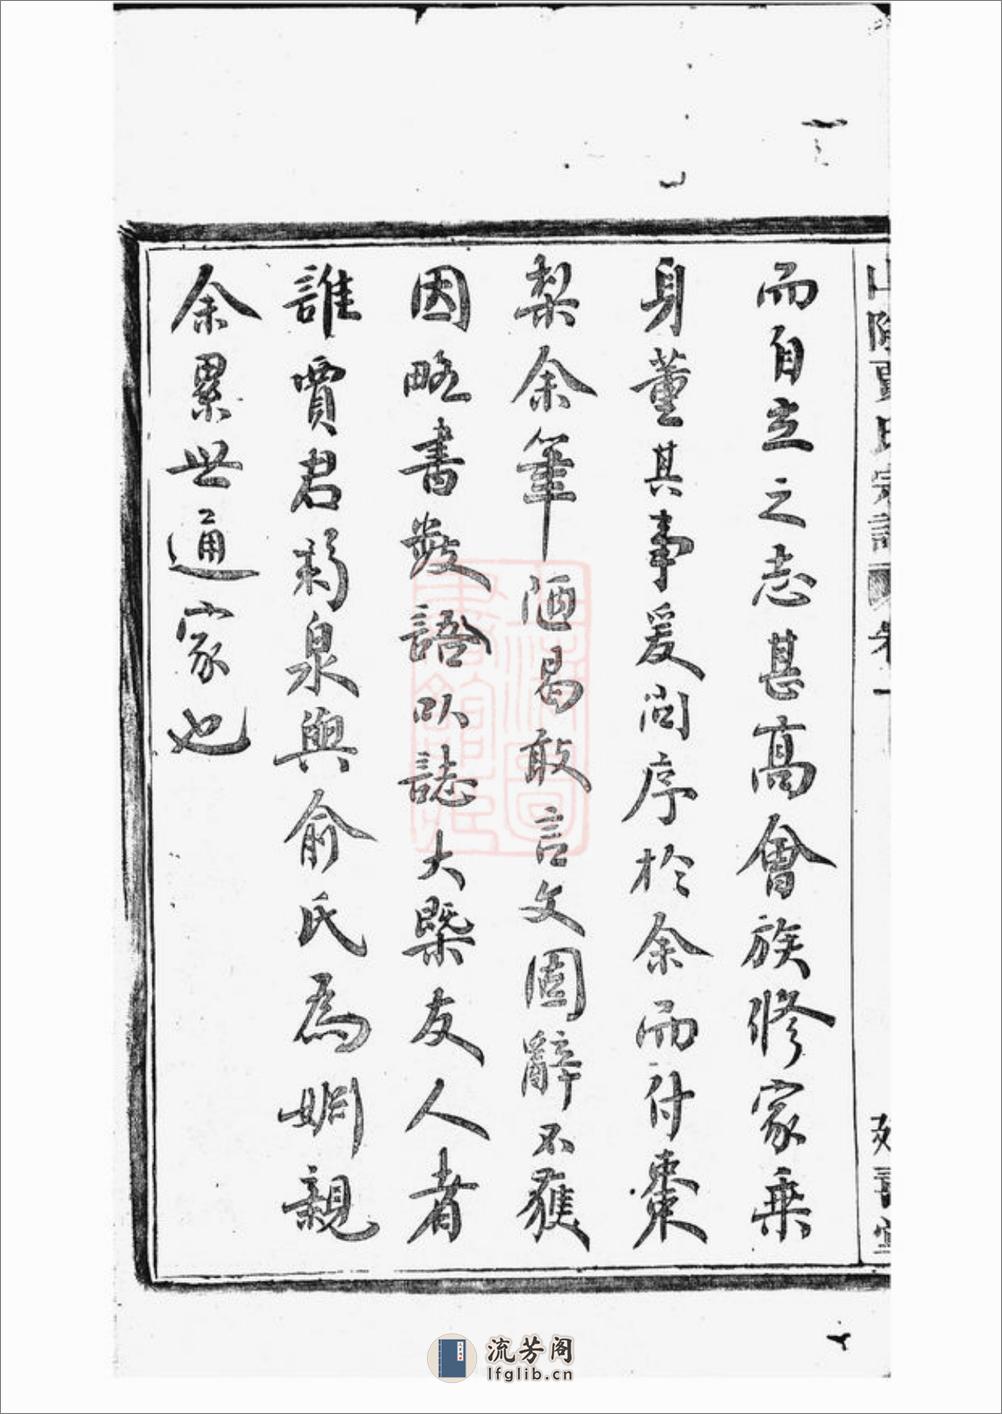 山陰賈氏宗譜 卷一
而自立之志甚高會族修家乗
身董其事爰問序於余而付棗
梨余筆陋曷敢言文固辭不獲
因略書数語以誌大槩友人者
誰賈君莉泉與俞氏為姻親
余累世通家也
流芳阁
lfglib.cn